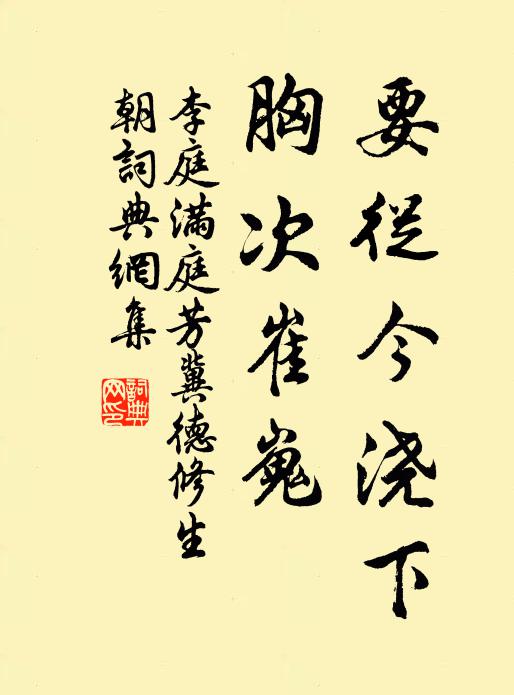 要從今浇下
胸次崔嵬
李庭满庭芳冀德修生
朝詞典網集
詞典
网印